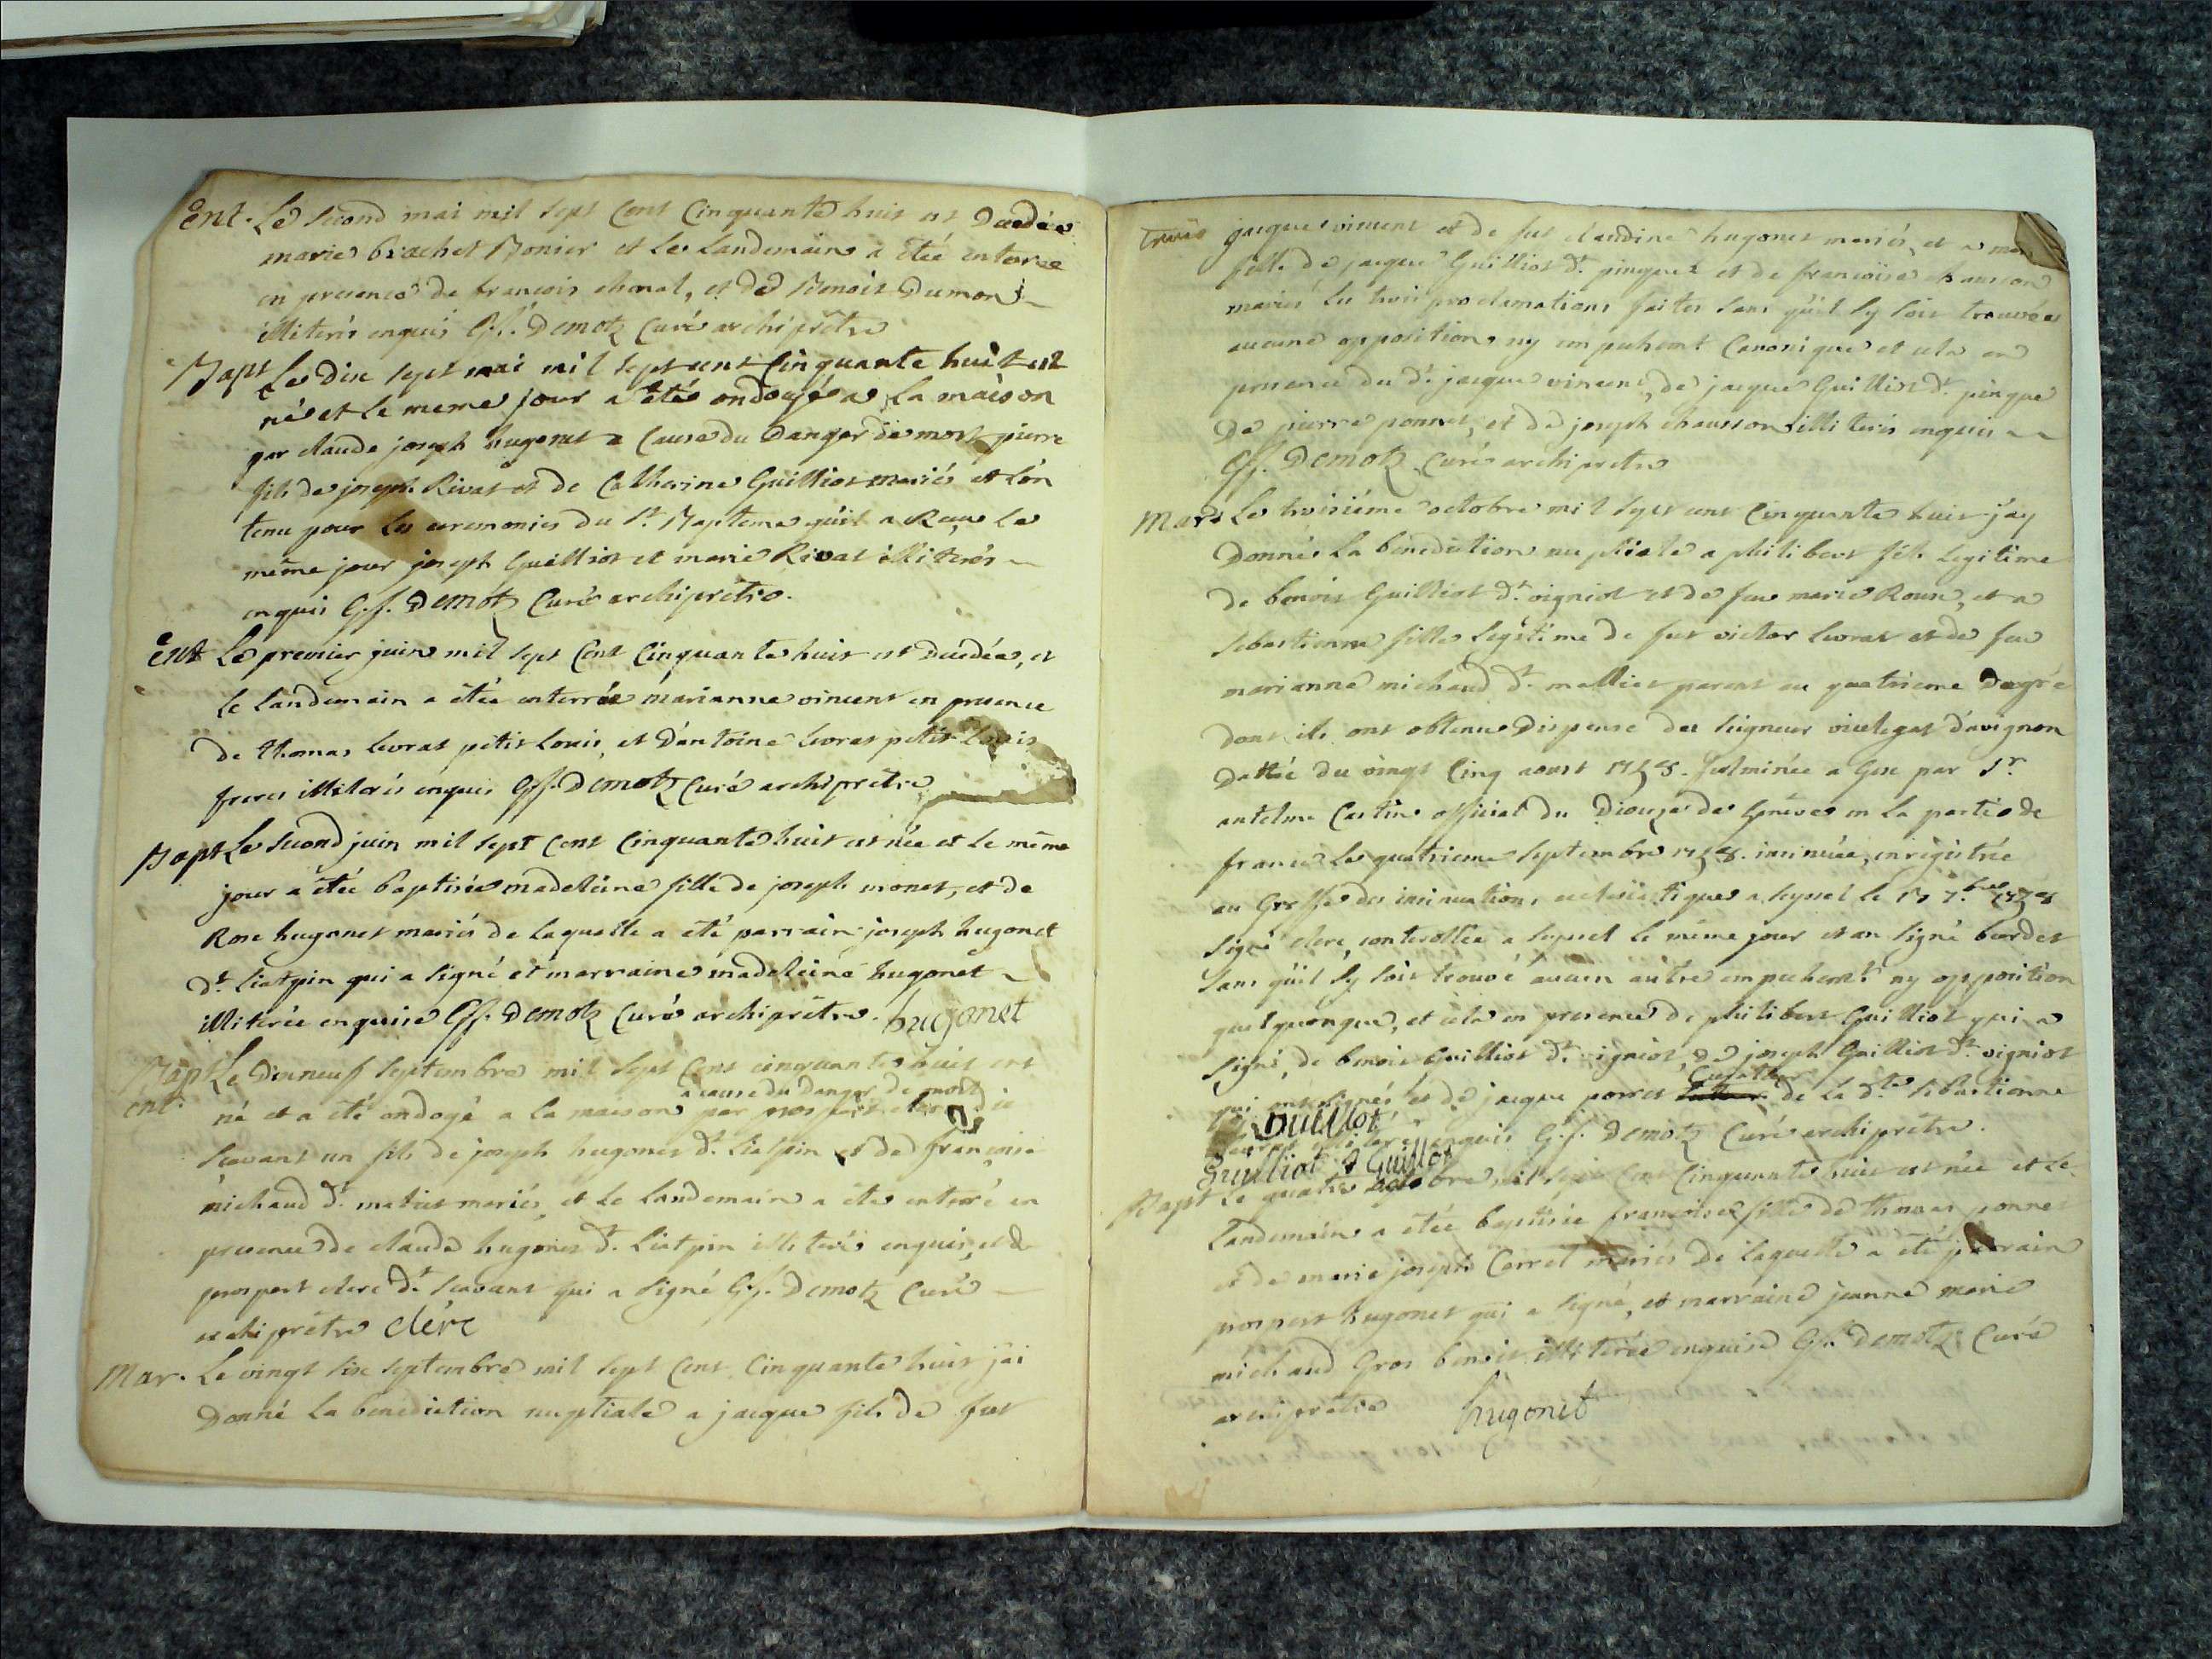 Ent. Le second mai mil sept cent cinquante huit est decedée
marie brachet Monier et le landemain a étée enterree
en presence de francois chonal, et de Benoit Dumon
illiterés enquis G.f. Demotz curé archiprêtre
Bapt Le dix sept mai mil sept cent cinquante huit est
né et le meme jour a été ondoyé a la maison
par claude joseph hugonet a cause du danger de mort pierre
fils de joseph Rivat et de Catherine Guilliot mariés et l'on
tenu pour les ceremonies du St. Bapteme qu'il a Reçu le
même jour joseph Guilliot et marie Rivat illiterés
enquis G.f. Demotz Curé archiprêtre.
Ent Le premier juin mil sept cent cinquante huit est decedée, et
le landemain a étée enterrée marianne vincent en presence
de thomas levrat petit Louis, et d'antoine levrat petit Louis
freres illiterés enquis G.f. Demotz Curé archiprêtre
Bapt Le second juin mil sept cent cinquante huit est née et le même
jour a étée baptisée madeleine fille de joseph monet, et de
Rose hugonet mariés de laquelle a été parrain joseph hugonet
dt. liatpin qui a signé et marraine madeleine hugonet
illiterée enquise G.f. Demotz Curé archiprêtre. hugonet
Bapt Le dixneuf septembre mil sept cent cinquante huit est
ent. a cause du danger de mort
né et a été ondoyé a la maison par prospert clerc die
scavant un fils de joseph hugonet dt. Liatpin et de françoise
michaud dt. matiet mariés, et le landemain a éte enterré en
presence de claude hugonet dt. Liatpin illiterés enquis, et de
prospert clerc dt. scavant qui a signé G.f. Demotz Curé
archiprêtre clérc
Mar. Le vingt six septembre mil sept cent cinquante huit j'ai
donné la benediction nuptiale a jacque fils de fut
jacque vincent et de fut claudine hugonet mariés, et a
fille de jacque Guilliot dt. pinque et de francoise chausson
mariés les trois proclamations faites sans qu'il sy soit trouvées
aucune opposition ny empechemt Canonique et cela en
presence du dt. jacque vincent, de jacque Guilliot dt. pinque
de pierre ponnet, et de joseph chausson illiterés enquis
G.f. Demotz Curé archiprêtre
Mar. Le troisiéme octobre mil sept cent cinquante huit j'ay
donné la benediction nuptiale a philibert fils legitime
de benoit Guilliot dt. vigniot et de feu marie Roux, et a
sebastienne fille legitime de fut victor levrat et de feu
marianne michaud dt. matliet parent au quatrieme degré
dont ils ont obtenu dispense du seigneur vicelegat d'avignon
dattée du vingt cinq aoust 1758. fulminée a Gex par Sr.
antelme Castin official du Diocèze de Genève en la partie de
france le quatrieme septembre 1758. insinuée, enregistrée
au Greffe des insinuations eclesiastiques a seyssel le 17 7.bre 1758
signé clerc, controllée a seyssel le même jour et an signé bordet
sans qu'il sy soit trouvé aucun autre empechemt. ny opposition
quelquonque, et cela en presence de philibert Guilliot qui a
signé, de benoit Guilliot dt. vigniot, de joseph Guilliot dt. vigniot
Curateur
qui ont signés et de jacque ponnet de la dte. sebastienne
Guillot
enquis G.f. Demotz Curé archiprêtre.
Guilliot Guillot
Bapt Le quatre octobre mil sept cent cinquante huit est née et le
landemain a étée baptisée francoise fille de thomas ponnet
et de marie joseph Cerret mariés de laquelle a été parrain
prospert hugonet qui a signé, et marraine jeanne marie
michaud Gros benoit illiterée enquise G.f. Demotz Curé
archiprêtre hugonet